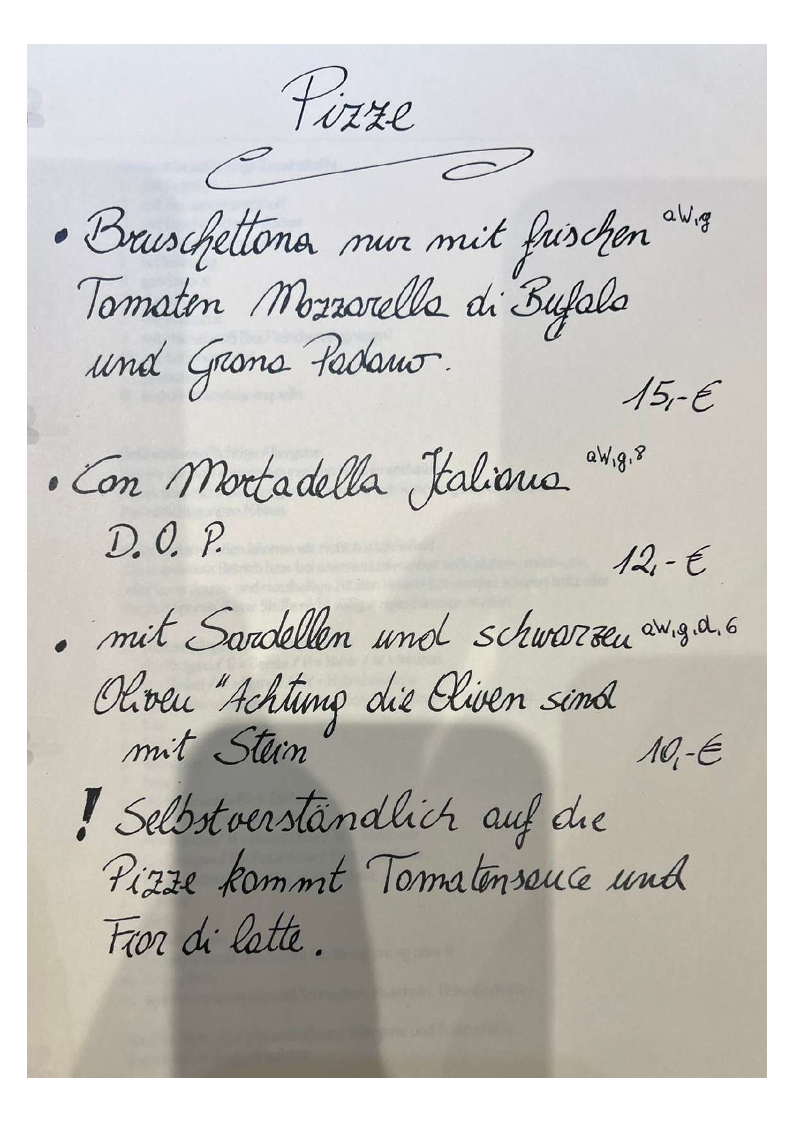 Pizze
• Bruschettona nur mit frischen aW,g
Tomaten Mozzarella di Bufala
und Grana Padano.
15,-€
• Con Mortadella Italiana aW,g,8
D. O. P.
12,-€
• mit Sardellen und schwarzen aW,g,d,6
Oliven "Achtung die Oliven sind
mit Stein
10,-€
! Selbstverständlich auf die
Pizze kommt Tomatensauce und
Fior di latte.